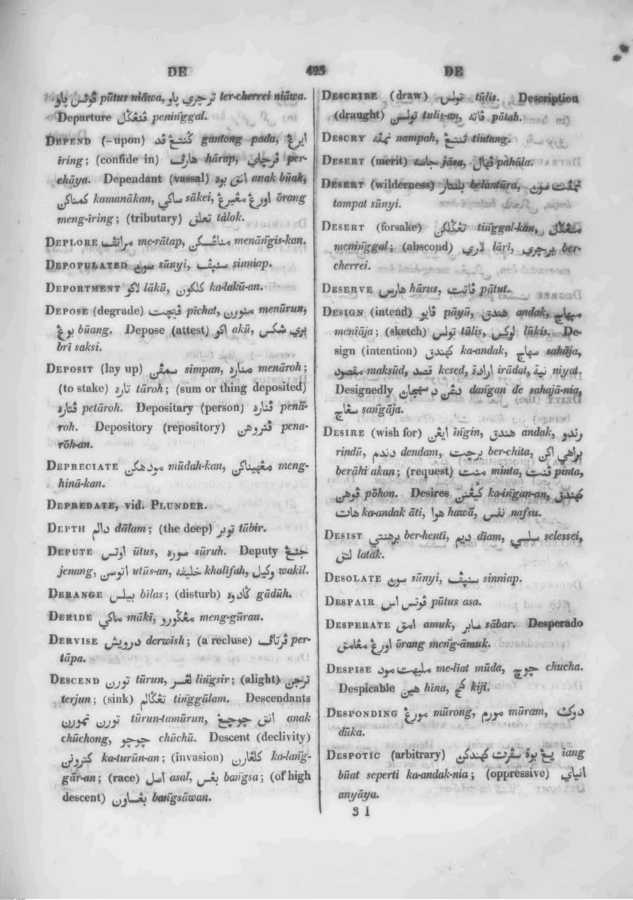 DE 425 DE
ڤوتس پاو pūtus niāwa, ترچري پاو ter-cherrei niāwa.
Departure ڤنڠݢل peninggal.
DEPEND (-upon) ݢنتڠ ڤد gantong pada, ايرڠ
īring; (confide in) هارف hārap, ڤرچاي per-
chāya. Dependant (vassal) انق بوه anak būah,
kamanākan, ساكي sākei, اورڠ مڠيرڠ ōrang
meng-īring; (tributary) تعلق tālok.
DEPLORE me-rātap, menāngis-kan.
DEPOPULATED سوني sūnyi, سنيڤ sinniap.
DEPORTMENT لاكو lākū, كلكون ka-lakū-an.
DEPOSE (degrade) ڤيچت pīchat, منورن menūrun,
بوڠ būang. Depose (attest) اكو akū, بري سكسي
brī saksi.
DEPOSIT (lay up) سمڤن simpan, مناره menāroh;
(to stake) تاره tāroh; (sum or thing deposited)
ڤتاره petāroh. Depositary (person) ڤناره penā-
roh. Depository (repository) ڤنروهن pena-
rōh-an.
DEPRECIATE مودهكن mūdah-kan, مڠهيناكن meng-
hinā-kan.
DEPREDATE, vid. PLUNDER.
DEPTH دالم dālam; (the deep) توبر tūbir.
DEPUTE اوتس ūtus, سوره sūruh. Deputy جنڠ
jenang, اتوسن utūs-an, خليفه khalīfah, وكيل wakīl.
DERANGE بيلس bīlas; (disturb) ݢادوه gādūh.
DERIDE ماكي mākī, مڠݢورو meng-gūrau.
DERVISE درويش derwīsh; (a recluse) ڤرتاڤ per-
tāpa.
DESCEND تورن tūrun, لڠسر lingsir; (alight) ترجن
terjun; (sink) تڠݢالم tinggālam. Descendants
تورن تمورن tūrun-tamūrun, انق چوچڠ anak
chūchong, چوچو chūchū. Descent (declivity)
كتورونن ka-tūrūn-an; (invasion) ka-lang-
gār-an; (race) اصل asal, بڠس bangsa; (of high
descent) بڠساون bangsāwan.
DESCRIBE (draw) تولس tūlis. Description
(draught) تولسن tulis-an, ڤاته pātah.
DESCRY نمڤه nampah, تنتڠ tintang.
DESERT (merit) جاس jāsa, ڤهال pahāla.
DESERT (wilderness) بلنتار belantāra, تمڤت سوني
tampat sūnyi.
DESERT (forsake) تڠݢلكن tinggal-kan, منڠݢل
meninggal; (abscond) لاري lāri, برچري ber-
cherrei.
DESERVE هارس hārus, ڤاتت pātut.
DESIGN (intend) pāyū, هندق andak, مهاج
meniāja; (sketch) تولس tūlis, لوكس lūkis. De-
sign (intention) كهندق ka-andak, سهاج sahāja,
مقصود maksūd, قصد kesed, ارادة irādat, نية niyat.
Designedly دڠن د سهجان dangan de sahajā-nia,
سڠاج sangāja.
DESIRE (wish for) ايڠن ingin, هندق andak, رندو
rindū, دندم dendam, برچيت ber-chita, براهي اكن
berāhi akan; (request) منت minta, ڤنت pinta,
ڤوهن pōhon. Desires كڠينن ka-ingan-an, كهندق
هات ka-andak āti, هوا hawā, نفس nafsu.
DESIST برهنتي ber-henti, ديم diam, سلسي selessei,
لتق latak.
DESOLATE سوني sūnyi, سنيڤ sinniap.
DESPAIR ڤوتس اس pūtus asa.
DESPERATE امق amuk, سابر sābar. Desperado
اورڠ مڠامق ōrang meng-āmuk.
DESPISE مليهت مود me-liat mūda, چوچ chucha.
Despicable هين hina, كجي kijī.
DESPONDING مورڠ mūrong, مورم mūram, دوك
dūka.
DESPOTIC (arbitrary) يڠ بوة سڤرت كهندقن iang
būat seperti ka-andak-nia; (oppressive) انياي
anyāya.
3 I